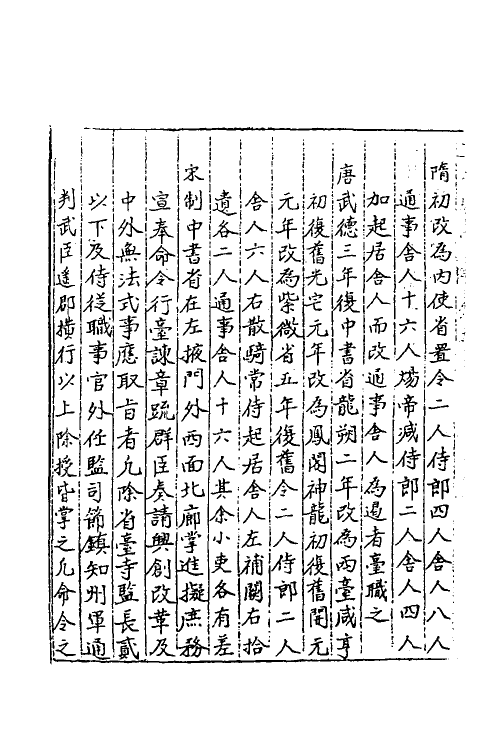 隋初改為内使省置令二人侍郎四人舍人八人
通事舍人十六人煬帝減侍郎二人舍人四人
加起居舍人而改通事舍人為謁者臺職之
唐武德三年復中書省龍朔二年改為西臺咸亨
初復舊光宅元年改為鳳閣神龍初復舊開元
元年改為紫微省五年復舊令二人侍郎二人
舍人六人右散騎常侍起居舍人左補闕右拾
遺各二人通事舍人十六人其余小吏各有差
宋制中書省在左掖門外西面北廊掌進擬庶務
宣奉命令行臺諫章䟽群臣奏請興創改革及
中外無法式事應取㫖者凡除省臺寺監長貳
以下及侍従職事官外任監司節鎮知州軍通
判武臣遥郡横行以上除授皆掌之凡命令之